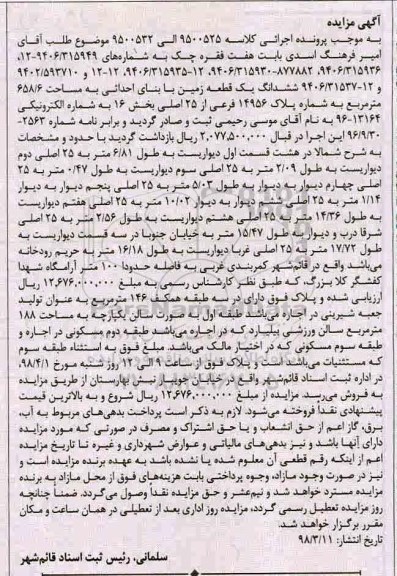 آگهی مزایده
به موجب پرونده اجرائی کلاسه ۹۵۰۰۵۲۵ الی ۹۵۰۰۵۳۲ موضوع طلب آقای
امیر فرهنگ اسدی بابت هفت فقره چک به شماره‌های ۹۴۰۶/۳۱۵۹۴۹-۱۲،
۹۴۰۶/۳۱۵۹۳۶، ۸۷۷۸۸۲-۹۴۰۶/۳۱۵۹۳۰، ۹۴۰۶/۳۱۵۹۳۵-۱۲، ۱۲ و ۹۴۰۲/۵۹۳۷۱۰
و ۹۴۰۶/۳۱۵۹۳۷-۱۲ ششدانگ یک قطعه زمین با بنای احداثی به مساحت ۶۵۸/۶
مترمربع به شماره پلاک ۱۴۹۵۶ فرعی از ۲۵ اصلی بخش ۱۶ به شماره الکترونیکی
۱۳۱۶۴-۹۶ به نام آقای موسی رحیمی ثبت و صادر گردید و برابر نامه شماره ۲۵۶۳-
۹۶/۹/۳۰ این اجرا در قبال ۲,۰۷۷,۵۰۰,۰۰۰ ریال بازداشت گردید با حدود و مشخصات
به شرح شمالا در هشت قسمت اول دیواریست به طول ۶/۸۱ متر به ۲۵ اصلی دوم
دیواریست به طول ۲/۰۹ متر به ۲۵ اصلی سوم دیواریست به طول ۰/۴۷ متر به ۲۵
اصلی چهارم دیوار به دیوار به طول ۵/۰۲ متر به ۲۵ اصلی پنجم دیوار به دیوار
۱/۱۴ متر به ۲۵ اصلی ششم دیوار به دیوار ۱۰/۰۲ متر به ۲۵ اصلی هفتم دیواریست
به طول ۱۴/۳۶ متر به ۲۵ اصلی هشتم دیواریست به طول ۲/۵۶ متر به ۲۵ اصلی
شرقا درب و دیوار به طول ۱۵/۴۷ متر به خیابان جنوبا در سه قسمت دیواریست به
طول ۱۷/۷۲ متر به ۲۵ اصلی غربا دیواریست به طول ۱۶/۱۸ متر به حریم رودخانه
می‌باشد واقع در قائم‌شهر کمربندی غربی به فاصله حدودا ۱۰۰ متر آرامگاه شهدا
کفشگر کلا بزرگ، که طبق نظر کارشناس رسمی به مبلغ ۱۲,۶۷۶,۰۰۰,۰۰۰ ریال
ارزیابی شده و پلاک فوق دارای در سه طبقه همکف ۱۴۶ مترمربع به عنوان تولید
جعبه شیرینی در اجاره می‌باشد طبقه اول به صورت سالن یکپارچه به مساحت ۱۸۸
مترمربع سالن ورزشی بیلیارد که در اجاره می‌باشد طبقه دوم مسکونی در اجاره و
طبقه سوم مسکونی که در اختیار مالک می‌باشد. مبلغ فوق به استثناء طبقه سوم
که مستثنیات می‌باشد است و پلاک فوق از ساعت ۹ الی ۱۲ روز شنبه مورخ ۹۸/۴/۱،
در اداره ثبت اسناد قائم‌شهر واقع در خیابان جویبار نبش بهارستان از طریق مزایده
به فروش می‌رسد. مزایده از مبلغ ۱۲,۶۷۶,۰۰۰,۰۰۰ ریال شروع و به بالاترین قیمت
پیشنهادی نقداً فروخته می‌شود. لازم به ذکر است پرداخت بدهی‌های مربوط به آب،
برق، گاز اعم از حق انشعاب و یا حق اشتراک و مصرف در صورتی که مورد مزایده
دارای آنها باشد و نیز بدهی‌های مالیاتی و عوارض شهرداری و غیره تا تاریخ مزایده
اعم از اینکه رقم قطعی آن معلوم شده یا نشده باشد به عهده برنده مزایده است و
نیز در صورت وجود مازاد، وجوه پرداختی بابت هزینه‌های فوق از محل مازاد به برنده
مزایده مسترد خواهد شد و نیم‌عشر و حق مزایده نقداً وصول می‌گردد. ضمناً چنانچه
روز مزایده تعطیل رسمی گردد، مزایده روز اداری بعد از تعطیلی در همان ساعت و مکان
مقرر برگزار خواهد شد.
تاریخ انتشار: ۹۸/۳/۱۱
سلمانی، رئیس ثبت اسناد قائم‌شهر